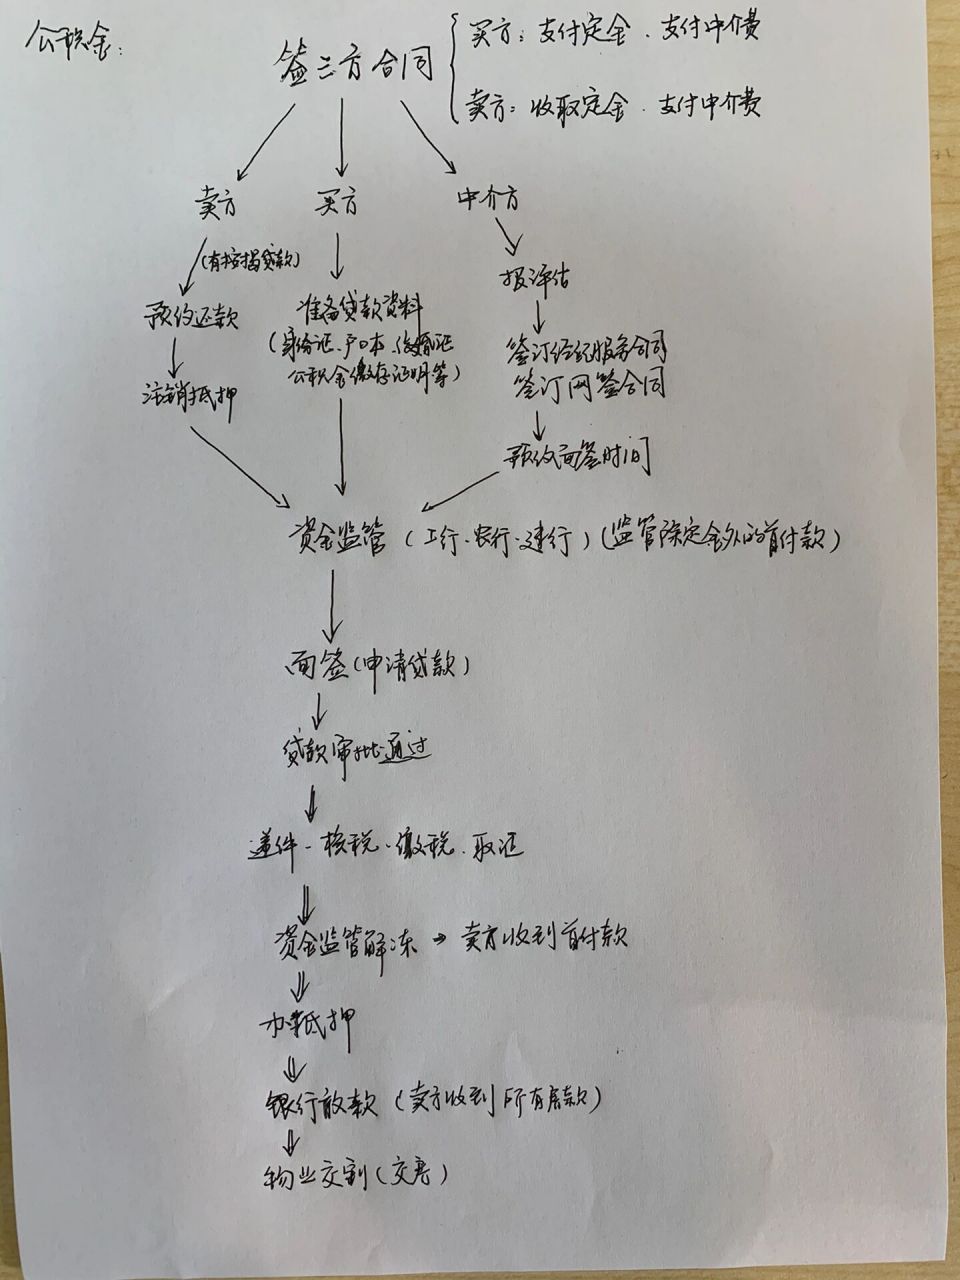 公积金:
签三方合同
买方: 支付定金、支付中介费
卖方: 收取定金、支付中介费
卖方
买方
中介方
(有按揭贷款)
预约还款
注销抵押
准备贷款资料
(身份证、户口本、结婚证
公积金缴存证明等)
报评估
签订经纪服务合同
签订网签合同
预约面签时间
资金监管 (工行、农行、建行) (监管除定金外的首付款)
面签 (申请贷款)
贷款审批通过
递件、核税、缴税、取证
资金监管解冻 → 卖方收到首付款
办抵押
银行放款 (卖方收到所有房款)
物业交割 (交房)